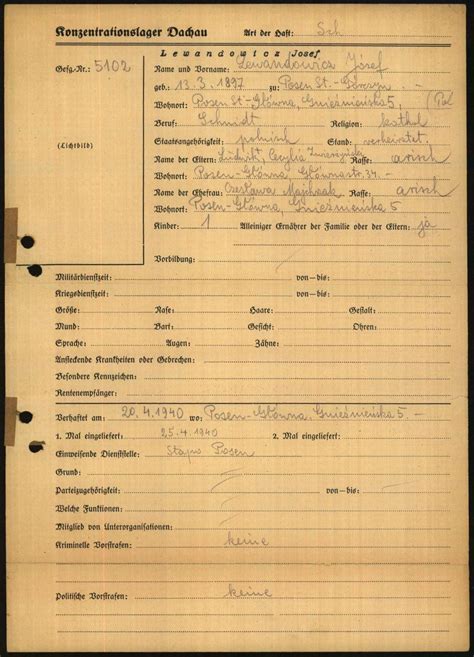 Konzentrationslager Dachau Art der Haft: Sch
Lewandowicz Josef
Gefg.-Nr.: 5102 Name und Vorname: Lewandowicz Józef
geb.: 13.3.1897 zu: Posen St.-Górczyn
Wohnort: Posen St-Główna, Gnieśnieńska 5, (Pol
Beruf: Schmidt Religion: kathol
Staatsangehörigkeit: polnisch Stand: verheiratet.
(Lichtbild)
Name der Eltern: Ludwik, Cecylia Rasse: arisch
Wohnort: Posen-Główna Głównastr. 34.-
Name der Ehefrau: Czesława Rasse: arisch
Wohnort: Posen-Główna, Gnieśnieńska 5
Kinder: 1 Alleiniger Ernährer der Familie oder der Eltern: ja
Vorbildung:
Militärdienstzeit: von—bis:
Kriegsdienstzeit: von—bis:
Größe: Nase: Haare: Gestalt:
Mund: Bart: Gesicht: Ohren:
Sprache: Augen: Zähne:
Ansteckende Krankheiten oder Gebrechen:
Besondere Kennzeichen:
Rentenempfänger:
Verhaftet am: 20.4.1940 wo: Posen-Główna, Gnieśnieńska 5.-
1. Mal eingeliefert: 25.4.1940 2. Mal eingeliefert:
Einweisende Dienststelle: Stapo Posen
Grund:
Parteizugehörigkeit: von—bis:
Welche Funktionen:
Mitglied von Unterorganisationen:
Kriminelle Vorstrafen: keine
Politische Vorstrafen: keine